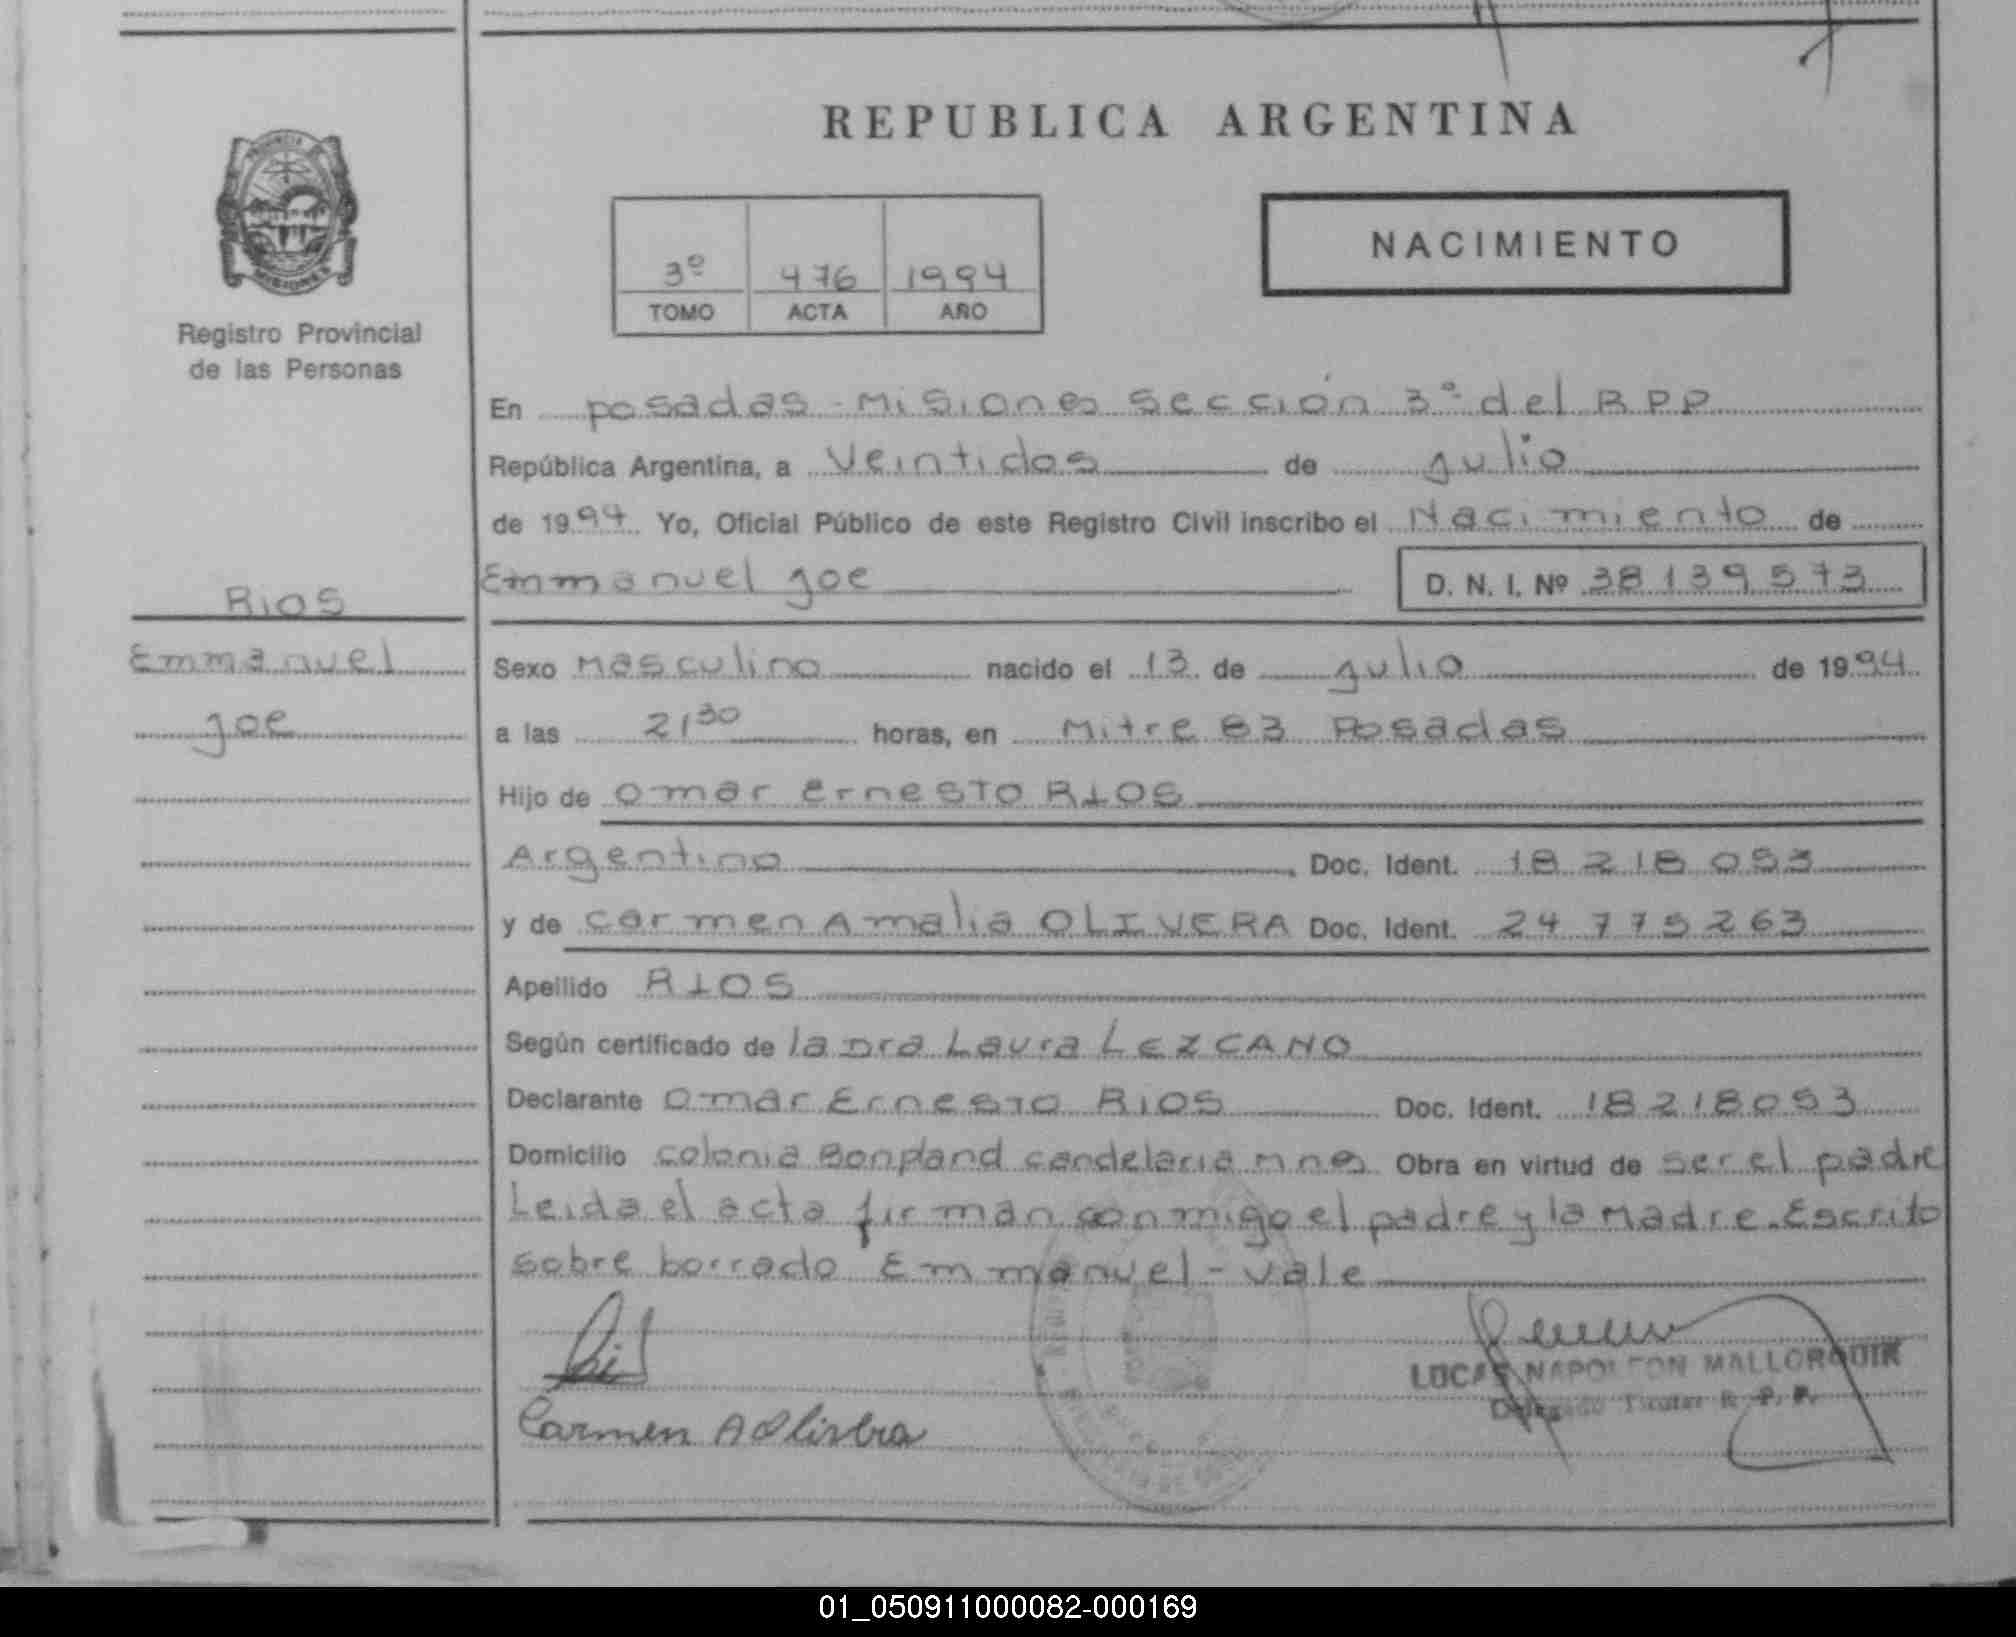 REPUBLICA ARGENTINA
PROVINCIA DE
MISIONES
Registro Provincial
de las Personas
3º 476 1994
TOMO ACTA AÑO
NACIMIENTO
En Posadas - Misiones Sección 3º del RPP
República Argentina, a Veintidos de Julio
de 1994 Yo, Oficial Público de este Registro Civil inscribo el Nacimiento de
Emmanuel Joe D. N. I. Nº 38139573
RIOS
Emmanuel
Joe
Sexo Masculino nacido el 13 de Julio de 1994
a las 21 30 horas, en Mitre 83 Posadas
Hijo de Omar Ernesto RIOS
Argentino Doc. Ident. 18 218 053
y de Carmen Amalia OLIVERA Doc. Ident. 24 775 263
Apellido RIOS
Según certificado de la Dra Laura LEZCANO
Declarante Omar Ernesto RIOS Doc. Ident. 18218053
Domicilio Colonia Bonpland Candelaria Mnes Obra en virtud de ser el padre
Leida el acta firman conmigo el padre y la Madre. Escrito
sobre borrado Emmanuel - vale
LUCAS NAPOLEON MALLORQUIN
Delegado Titular R. P. P.
Carmen A Olivera
01_050911000082-000169